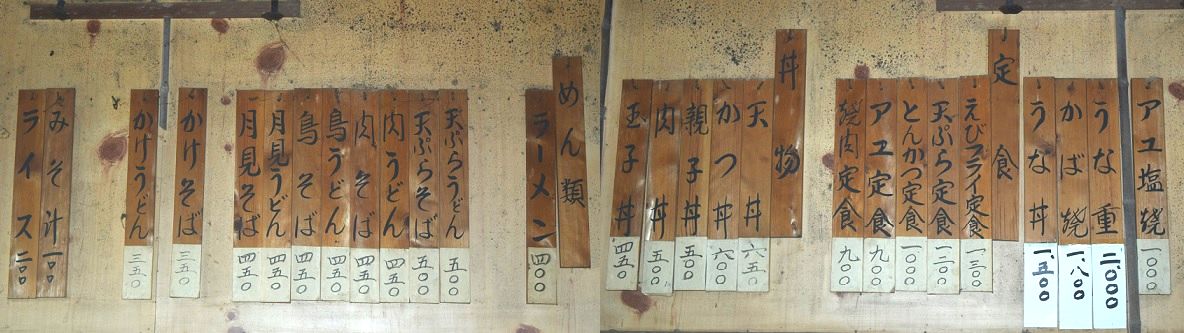 アユ塩焼 一〇〇〇
うな重 二、〇〇〇
かば焼 一、八〇〇
うな丼 一、五〇〇
定食
えびフライ定食 一三〇〇
天ぷら定食 一二〇〇
とんかつ定食 一〇〇〇
アユ定食 九〇〇
焼肉定食 九〇〇
丼物
天丼 六五〇
かつ丼 六〇〇
親子丼 五〇〇
肉丼 五〇〇
玉子丼 四五〇
めん類
ラーメン 四〇〇
天ぷらうどん 五〇〇
天ぷらそば 五〇〇
肉うどん 四五〇
肉そば 四五〇
鳥うどん 四五〇
鳥そば 四五〇
月見うどん 四五〇
月見そば 四五〇
かけそば 三五〇
かけうどん 三五〇
みそ汁 一〇〇
ライス 二〇〇